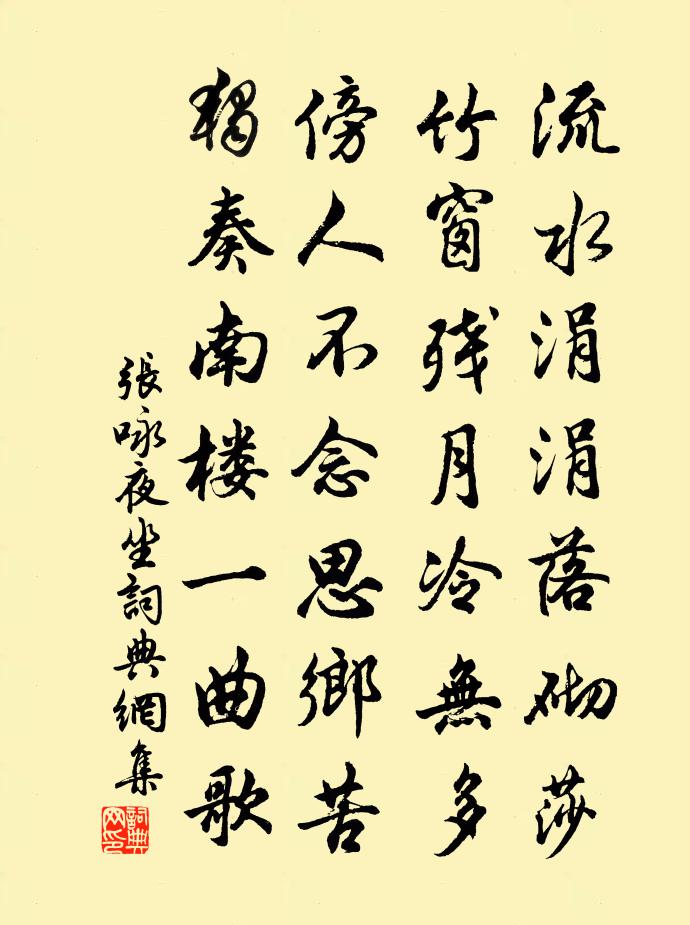 流水涓涓落砌莎
竹窗残月冷無多
傍人不念思鄉苦
獨奏南楼一曲歌
張咏夜坐詞典網集
詞典网印